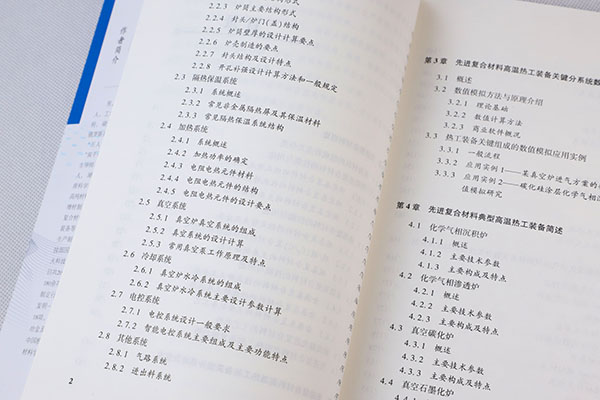 2.2.3 炉筒主要结构形式
2.2.4 封头/炉门(盖)结构
2.2.5 炉筒壁厚的设计计算要点
2.2.6 炉壳制造的要点
2.2.7 封头结构及设计特点
2.2.8 开孔补强设计计算方法和一般规定
2.3 隔热保温系统
2.3.1 系统概述
2.3.2 常见非金属隔热屏及其保温材料
2.3.3 常见隔热保温系统结构
2.4 加热系统
2.4.1 系统概述
2.4.2 加热功率的确定
2.4.3 电阻电热元件材料
2.4.4 电阻电热元件的结构
2.4.5 电阻电热元件的设计要点
2.5 真空系统
2.5.1 真空炉真空系统的组成
2.5.2 真空系统的设计计算
2.5.3 常用真空泵工作原理及特点
2.6 冷却系统
2.6.1 真空炉水冷系统的组成
2.6.2 真空炉水冷系统主要设计参数计算
2.7 电控系统
2.7.1 电控系统设计一般要求
2.7.2 智能电控系统主要组成及主要功能特点
2.8 其他系统
2.8.1 气路系统
2.8.2 进出料系统
2
第3章 先进复合材料高温热工装备关键分系统数
3.1 概述
3.2 数值模拟方法与原理介绍
3.2.1 理论基础
3.2.2 数值计算方法
3.2.3 商业软件概况
3.3 热工装备关键组成的数值模拟应用实例
3.3.1 一般流程
3.3.2 应用实例1——某真空炉进气方案的
3.3.3 应用实例2——碳化硅涂层化学气相沉
值模拟研究
第4章 先进复合材料典型高温热工装备简述
4.1 化学气相沉积炉
4.1.1 概述
4.1.2 主要技术参数
4.1.3 主要构成及特点
4.2 化学气相渗透炉
4.2.1 概述
4.2.2 主要技术参数
4.2.3 主要构成及特点
4.3 真空碳化炉
4.3.1 概述
4.3.2 主要技术参数
4.3.3 主要构成及特点
4.4 真空石墨化炉
作者简介